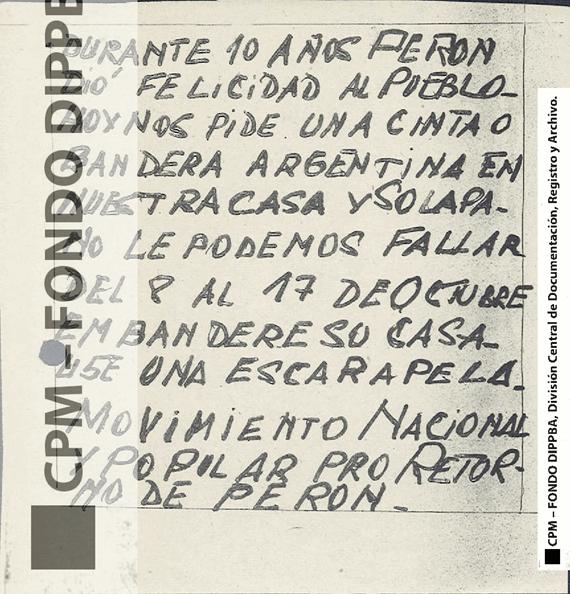 DURANTE 10 AÑOS PERON
DIO' FELICIDAD AL PUEBLO-
HOY NOS PIDE UNA CINTA O
BANDERA ARGENTINA EN
NUESTRA CASA Y SOLAPA-
NO LE PODEMOS FALLAR
DEL 8 AL 17 DE OCTUBRE
EMBANDERE SU CASA-
USE UNA ESCARAPELA-
MOVIMIENTO NACIONAL
Y POPULAR PRO RETOR-
NO DE PERON-
CPM – FONDO DIPPB
CPM – FONDO DIPPBA, División Central de Documentación, Registro y Archivo.